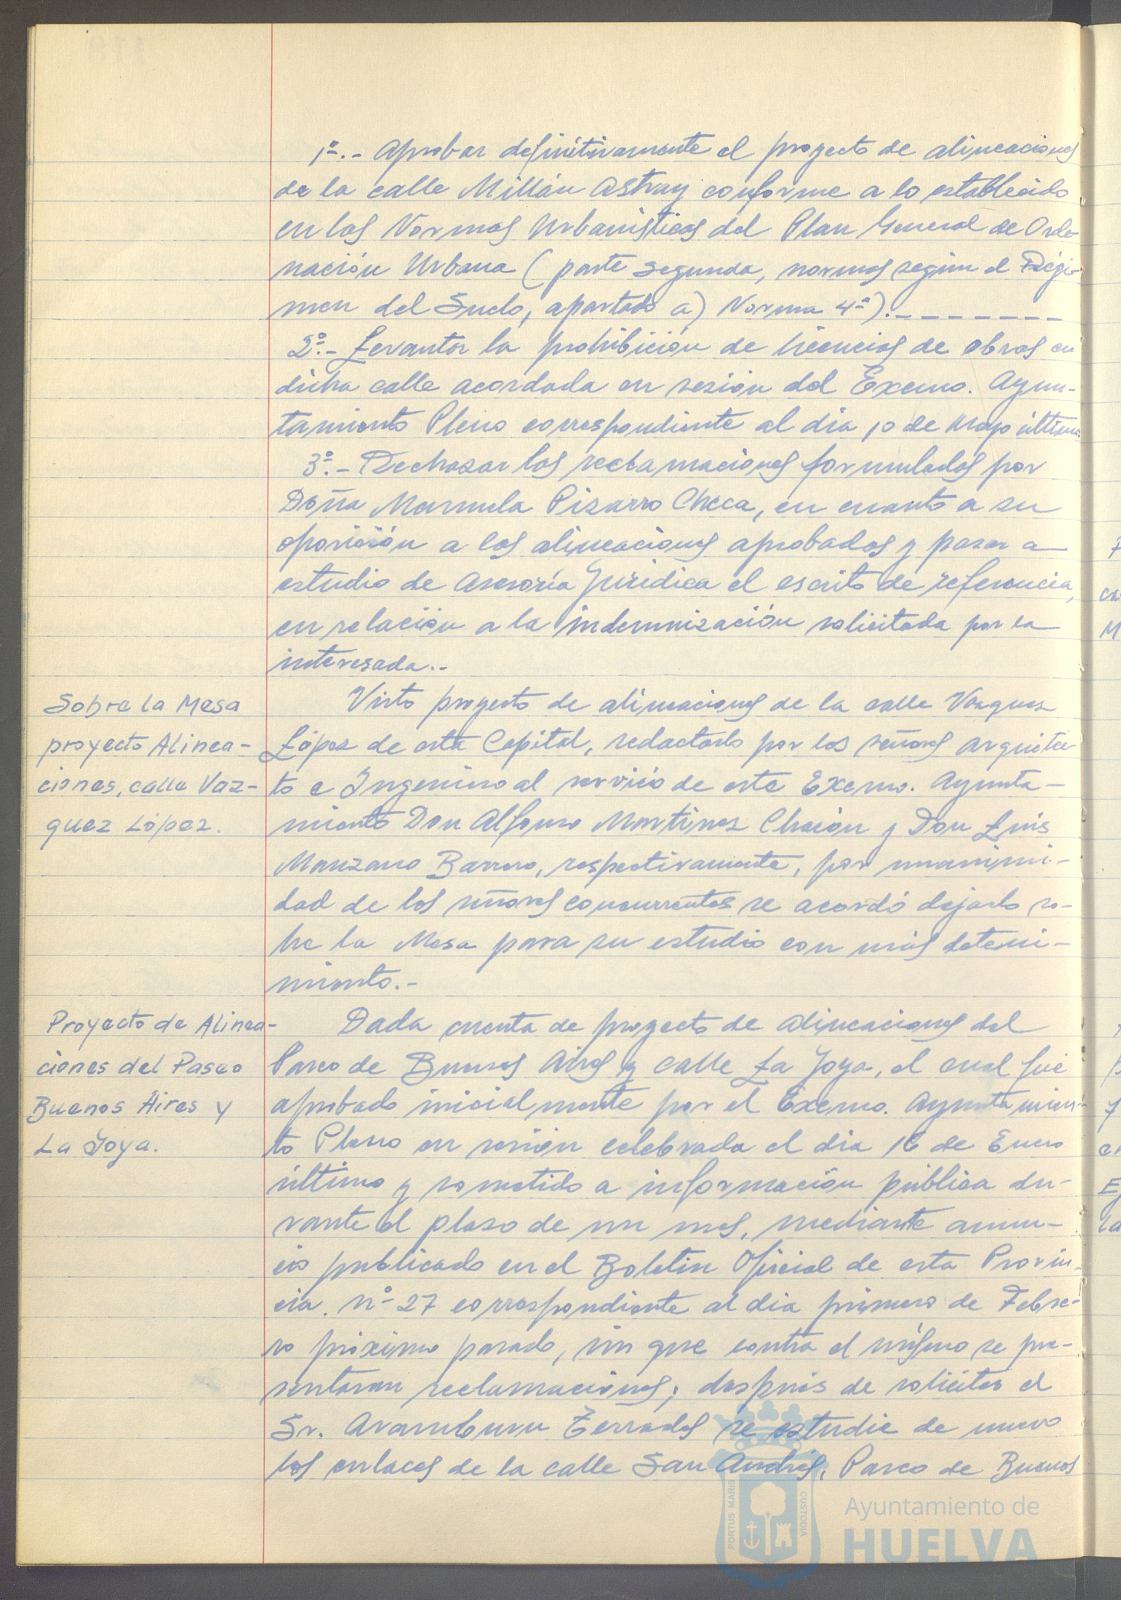 1º.- Aprobar definitivamente el proyecto de alineaciones
de la calle Millán Astray conforme a lo establecido
en las Normas Urbanísticas del Plan General de Orde
nación Urbana (parte segunda, normas según el Régi-
men del Suelo, apartado a) Norma 4ª).-------
2º.- Levantar la prohibición de licencias de obras en
dicha calle acordada en sesión del Excmo. Ayun-
tamiento Pleno correspondiente al día 10 de Mayo último
3º.- Rechazar las reclamaciones formuladas por
Doña Manuela Pizarro Checa, en cuanto a su
oposición a las alineaciones aprobadas y pasar a
estudio de Asesoría Jurídica el escrito de referencia,
en relación a la indemnización solicitada por la
interesada.-
Sobre la Mesa
proyecto Alinea-
ciones, calle Vaz-
quez López.
Visto proyecto de alineaciones de la calle Vazquez
López de esta Capital, redactado por los señores Arquitec
to e Ingeniero al servicio de este Excmo. Ayunta-
miento Don Alfonso Martinez Chacón y Don Luis
Manzano Barrero, respectivamente, por unanimi-
dad de los señores concurrentes se acordó dejarlo so-
bre la Mesa para su estudio con más deteni-
miento.-
Proyecto de Alinea-
ciones del Paseo
Buenos Aires y
La Joya.
Dada cuenta de proyecto de alineaciones del
Paseo de Buenos Aires y calle La Joya, el cual fué
aprobado inicialmente por el Excmo. Ayuntamien-
to Pleno en sesión celebrada el día 16 de Enero
último y sometido a información pública du-
rante el plazo de un mes, mediante anun-
cio publicado en el Boletin Oficial de esta Provin-
cia, nº 27 correspondiente al día primero de Febre-
ro próximo pasado, sin que contra el mismo se pre-
sentaran reclamaciones; después de solicitar el
Sr. Aramburu Terrades se estudie de nuevo
los enlaces de la calle San Andrés, Paseo de Buenos
PORTUS MARIS
CUSTODIA
Ayuntamiento de
HUELVA